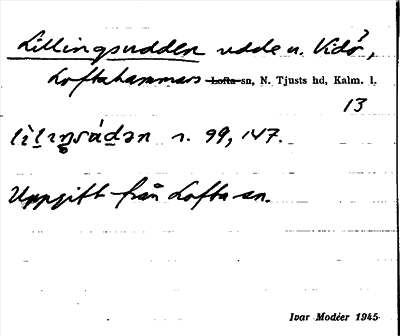 Lillingsudden udde u. Vidö?,
Loftahammars ~~Lofta~~ sn, N. Tjusts hd, Kalm. l.
13
s. 99, 147.
Uppgift från Lofta sn.
Ivar Modéer 1945